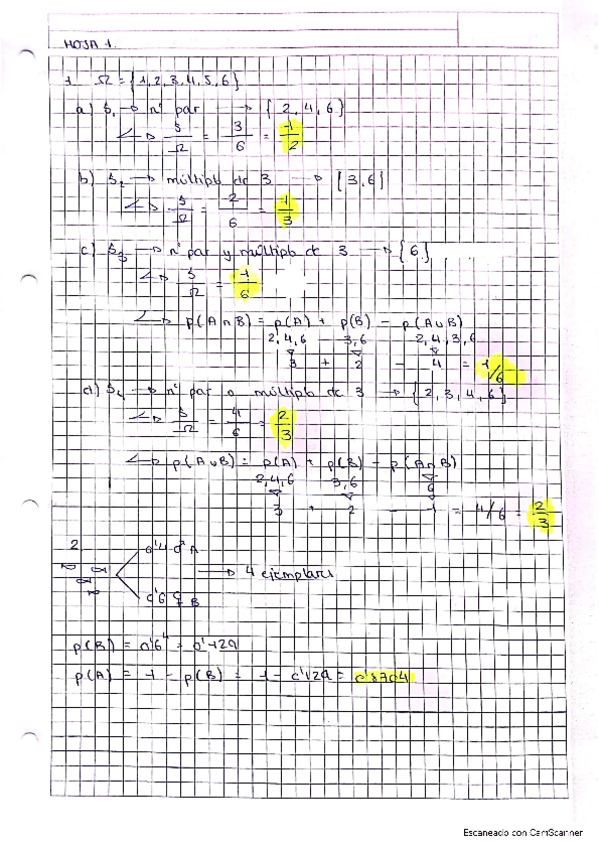 HOJA 1.
1 Ω = {1, 2, 3, 4, 5, 6}
a) S₁ → nº par → { 2, 4, 6}
↳ S/Ω = 3/6 = 1/2
b) S₂ → múltiplo de 3 → {3, 6}
↳ S/Ω = 2/6 = 1/3
c) S₃ → nº par y múltiplo de 3 → {6}
↳ S/Ω = 1/6
↳ p(A∩B) = p(A) + p(B) - p(A∪B)
2, 4, 6 3, 6 2, 4, 3, 6
3 + 2 - 4 = 1/6
d) S₄ → nº par o múltiplo de 3 → { 2, 3, 4, 6}
↳ S/Ω = 4/6 = 2/3
↳ p(A∪B) = p(A) + p(B) - p(A∩B)
2, 4, 6 3, 6 6
3 + 2 - 1 = 4/6 = 2/3
2
0'4 ♂ A
→ 4 ejemplares
0'6 ♀ B
p(B) = 0'6⁴ = 0'129
p(A) = 1 - p(B) = 1 - 0'129 = 0'8704
Escaneado con CamScanner